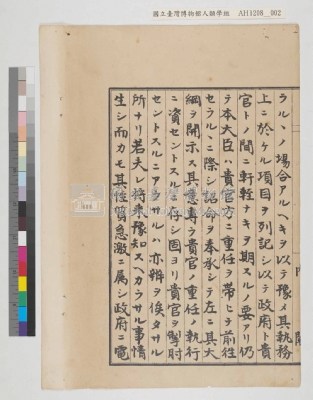 國立臺灣博物館人類學組 AH1208__002
ラルヽノ場合アルヘキヲ以テ豫メ其執務
上ニ於ケル項目ヲ列記シ以テ政府ト貴
官トノ間ニ軒輊ナキヲ期スルノ要アリ仍
テ本大臣ハ貴官カ重任ヲ帶ヒテ前往
セラルヽニ際シ詔命ヲ奉承シテ左ニ其大
綱ヲ開示ス其意專ラ貴官ノ重任ノ執行
ニ資セントスルニ存シ固ヨリ貴官ヲ掣肘
セントスルニアラサルハ亦辯ヲ俟タサル
所ナリ若夫レ將來豫知スヘカラサル事情
生シ而カモ其性質急激ニ属シ政府ニ電
內閣